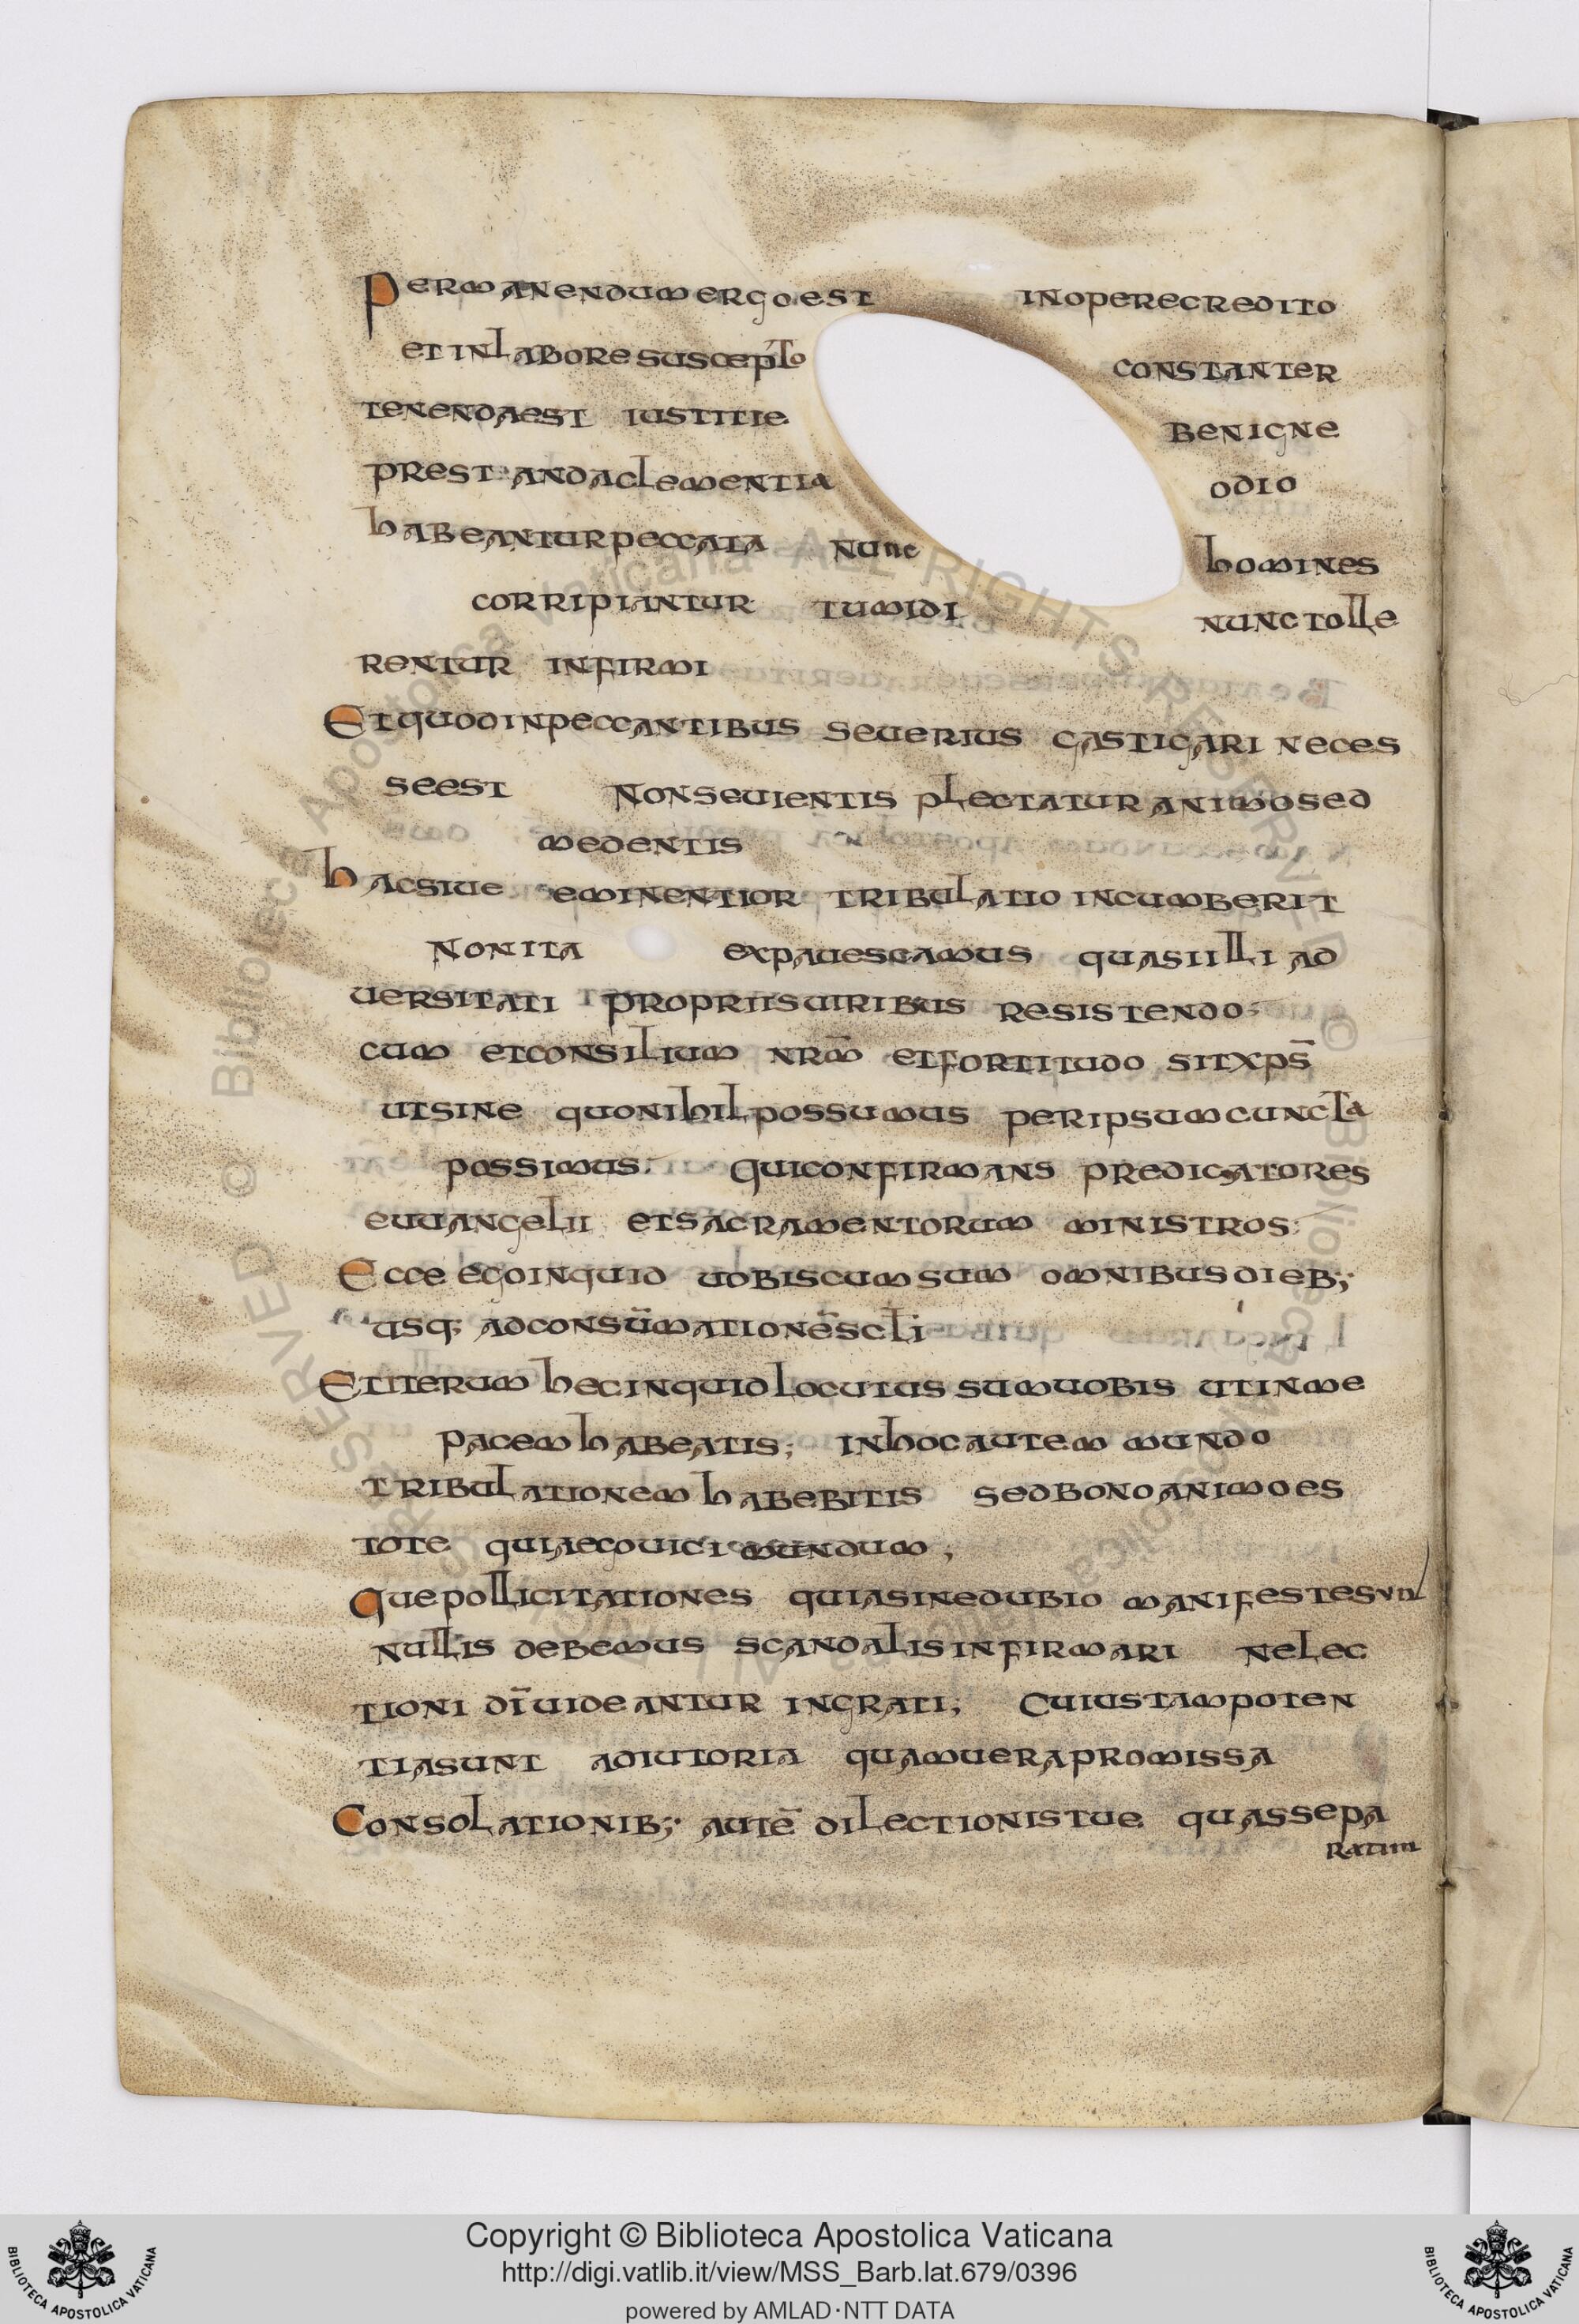 Permanendum ergo est inopere credito
et in labore suscepto constanter
tenenda est iustitie benigne
prestanda clementia odio
habeantur peccata nunc homines
corripiantur tumidi nunc tolle
rentur infirmi
Et quod in peccantibus seuerius castigari neces
se est non seuientis plectatur animo sed
medentis
hac siue eminentior tribulatio incumberit
non ita expauescamus quasi illi ad
uersitati propriis uiribus resistendo
cum et consilium nrm̄ et fortitudo sit xps̄
ut sine quo nihil possumus per ipsum cuncta
possimus. Qui confirmans predicatores
euuangelii et sacramentorum ministros
Ecce ego inquid uobiscum sum omnibus dieb;
usq; ad consūmationē scli
Et iterum hec inquid locutus sum uobis ut in me
pacem habeatis; in hoc autem mundo
tribulationem habebitis sed bono animo es
tote quia ego uici mundum;
Que pollicitationes quia sine dubio manifeste sunt
nullis debemus scandalis infirmari ne lec
tioni dī uideantur ingrati; Cuius tam poten
tia sunt adiutoria quam uera promissa
Consolationib; autē dilectionis tue quas sepa
ratim
Copyright © Biblioteca Apostolica Vaticana
http://digi.vatlib.it/view/MSS_Barb.lat.679/0396
powered by AMLAD·NTT DATA